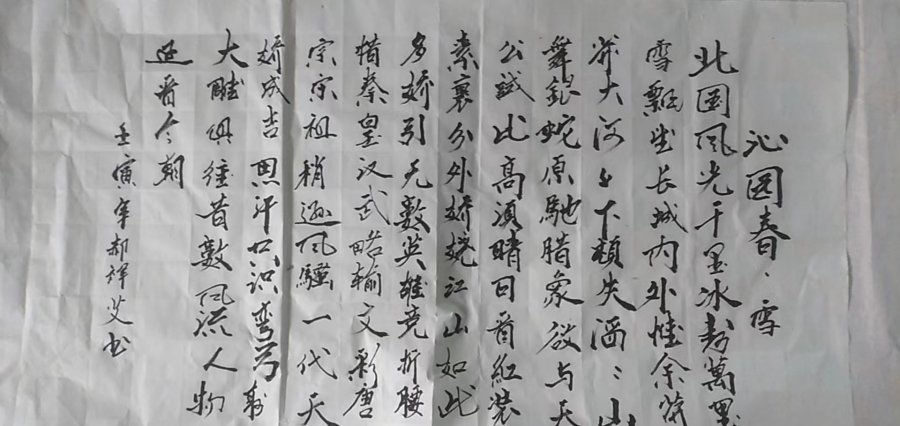 沁园春·雪
北国风光千里冰封萬里
雪飘望长城内外惟余莽
莽大河上下顿失滔〻山
舞銀蛇原馳腊象欲与天
公試比高須晴日看紅装
素裹分外娇娆江山如此
多娇引无數英雄竞折腰
惜秦皇汉武略输文彩唐
宗宋祖稍遜风騷一代天
娇成吉思汗只识弯弓射
大雕俱往昔數风流人物
还看今朝
壬寅年郝祥艾书